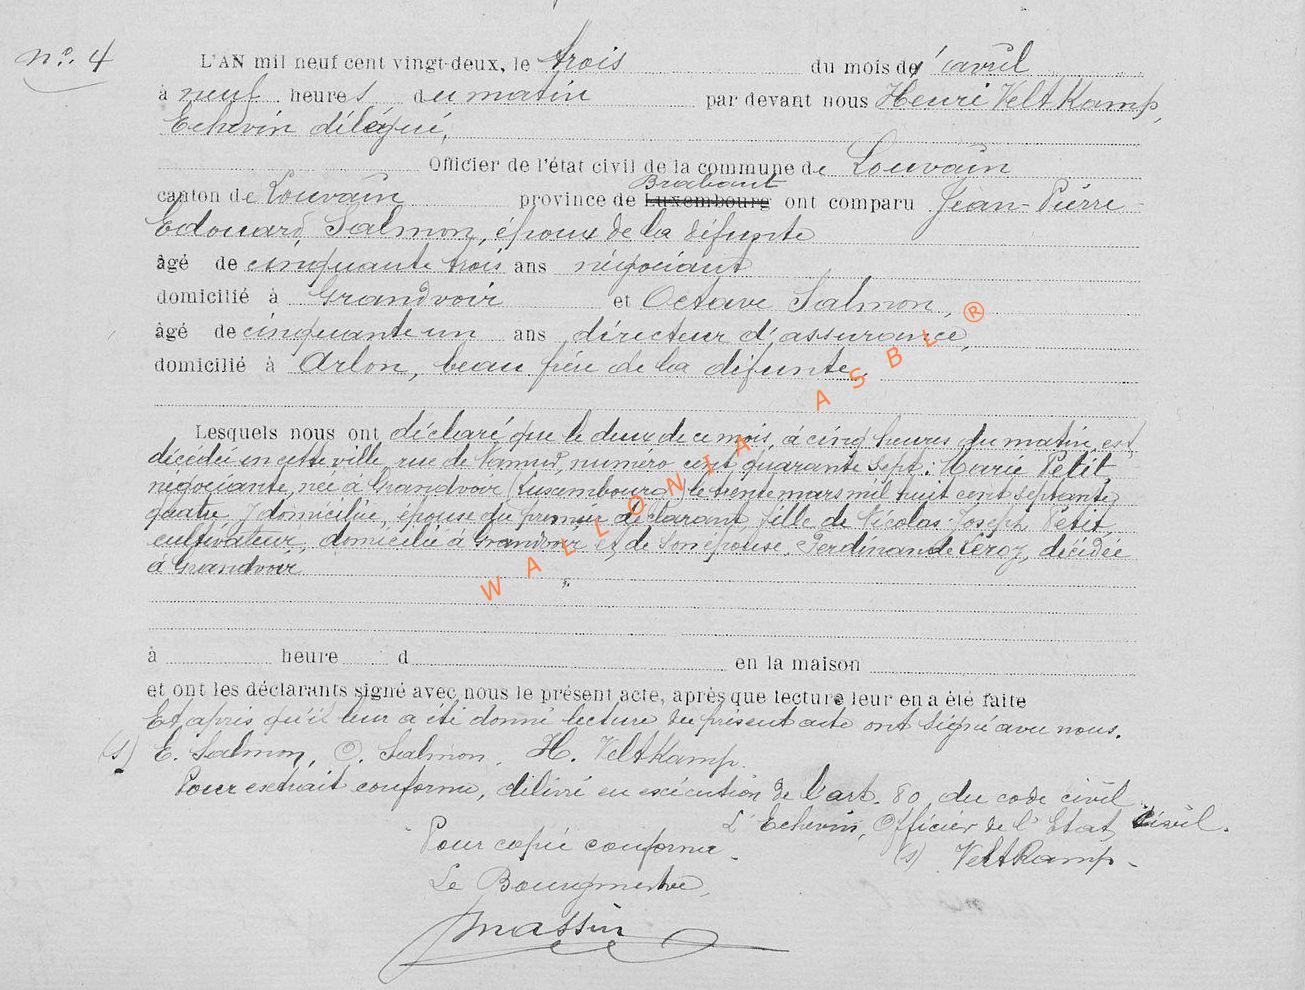 n°. 4
L'AN mil neuf cent vingt-deux, le trois du mois de d'avril
à neuf heures du matin par devant nous Henri VeltKamp,
Echevin délégué,
Officier de l'état civil de la commune de Louvain
Brabant
canton de Louvain province de Luxembourg ont comparu Jean-Pierre-
Edouard Salmon, époux de la défunte
âgé de cinquante trois ans négociant
domicilié à Grandvoir et Octave Salmon,
âgé de cinquante un ans directeur d'assurance,
domicilié à Arlon, beau frère de la défunte.
Lesquels nous ont déclaré que le deux de ce mois, à cinq heures du matin, est
décédée en cette ville, rue de Namur, numéro cent quarante sept: Marie Petit,
négociante, née à Grandvoir (Luxembourg) le trente mars mil huit cent septante
quatre, y domiciliée, épouse du premier déclarant, fille de Nicolas-Joseph Petit,
cultivateur, domicilié à Grandvoir et de son épouse Ferdinande Leroy, décédée
à Grandvoir
à heure d en la maison
et ont les déclarants signé avec nous le présent acte, après que lecture leur en a été faite
Et après qu'il leur a été donné lecture du présent acte ont signé avec nous.
(s) E. Salmon, O. Salmon, H. VeltKamp.
Pour extrait conforme, délivré en exécution de l'art. 80 du code civil
L'Echevin, Officier de l'Etat civil.
Pour copie conforme. (s) VeltKamp-
Le Bourgmestre,
Massin
WALLONIA ASBL ®